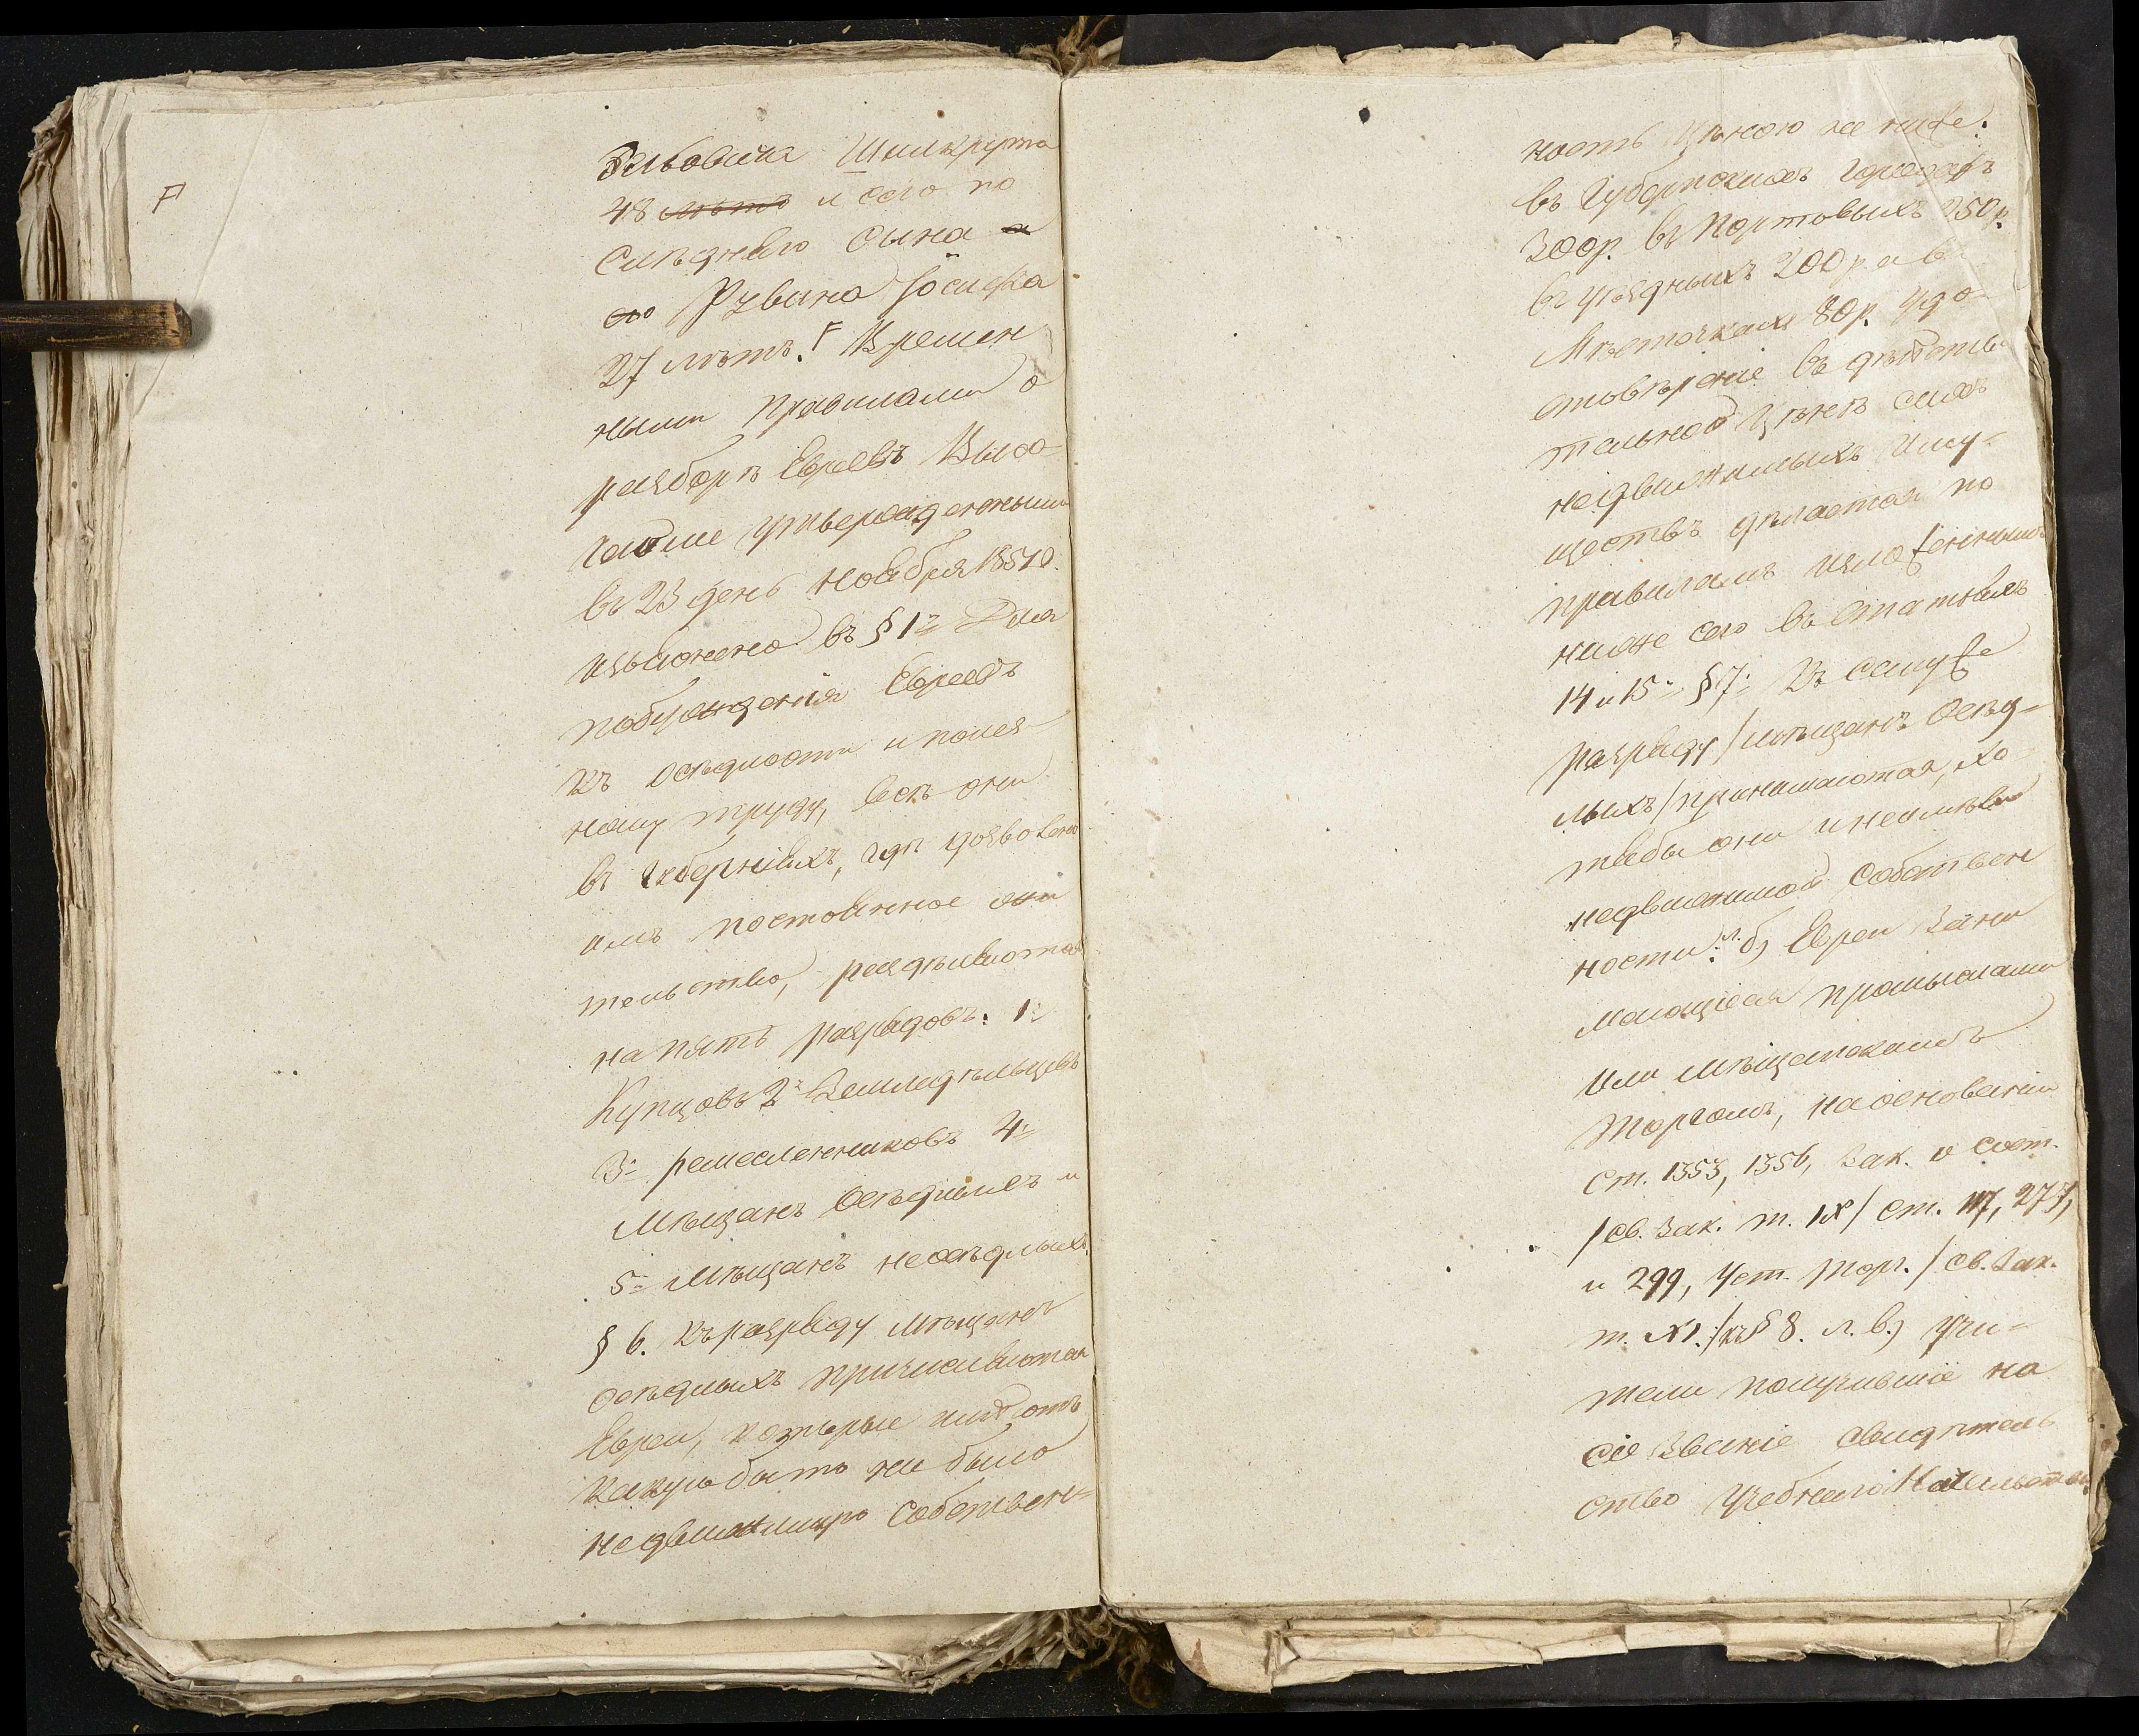 F
Зельовича Шмикрута
48 лѣтъ и сего по
слѣдняго сына
Рувина Іосифа
27 лѣтъ. F Времен
ными правилами о
разборѣ Евреевъ Высо-
чайше утвержденными
въ 23 день Ноября 1851 г.
изъяснено въ § 1й Для
побужденія Евреевъ
къ осѣдлости и полез-
ному труду, всѣ они
въ Губерніяхъ, гдѣ дозволено
имъ постоянное жи
тельство, раздѣляются
на пять разрядовъ: 1й
Купцовъ 2й Земледѣльцевъ
3й ремесленниковъ 4й
Мѣщанъ Осѣдлыхъ и
5й Мѣщанъ неосѣдлыхъ.
§ 6. Къ разряду мѣщанъ
осѣдлыхъ причисляются
Евреи, которые имѣютъ
какую бы то ни было
недвижимую собствен-
ность цѣною не ниже:
въ Губернскихъ городахъ
300 р. въ портовыхъ 250 р.
въ уѣздныхъ 200 р. а въ
Мѣстечкахъ 80 р. Удо-
стовѣреніе въ дѣйстви
тельной цѣнѣ сихъ
недвижимыхъ Иму-
ществъ дѣлается по
правиламъ изложеннымъ
ниже сего въ статьяхъ
14 и 15й § 7й Къ сему же
разряду /мѣщанъ Осѣд-
лыхъ/ принимаются, хо-
тябы они и неимѣли
недвижимой Собствен
ности: л. б) Евреи Зани
мающіеся промыслами
или мѣщанскимъ
Торгомъ, на основаніи
Ст. 1353, 1356, Зак. о Сост.
/Св. Зак. т. IX/ ст. 117, 277,
и 299, Уст. Торг. /Св. Зак.
т. XI./ къ § 8. л. в.) Учи-
тели получившіе на
сіе Званіе свидѣтель
ство Учебнаго Начальства